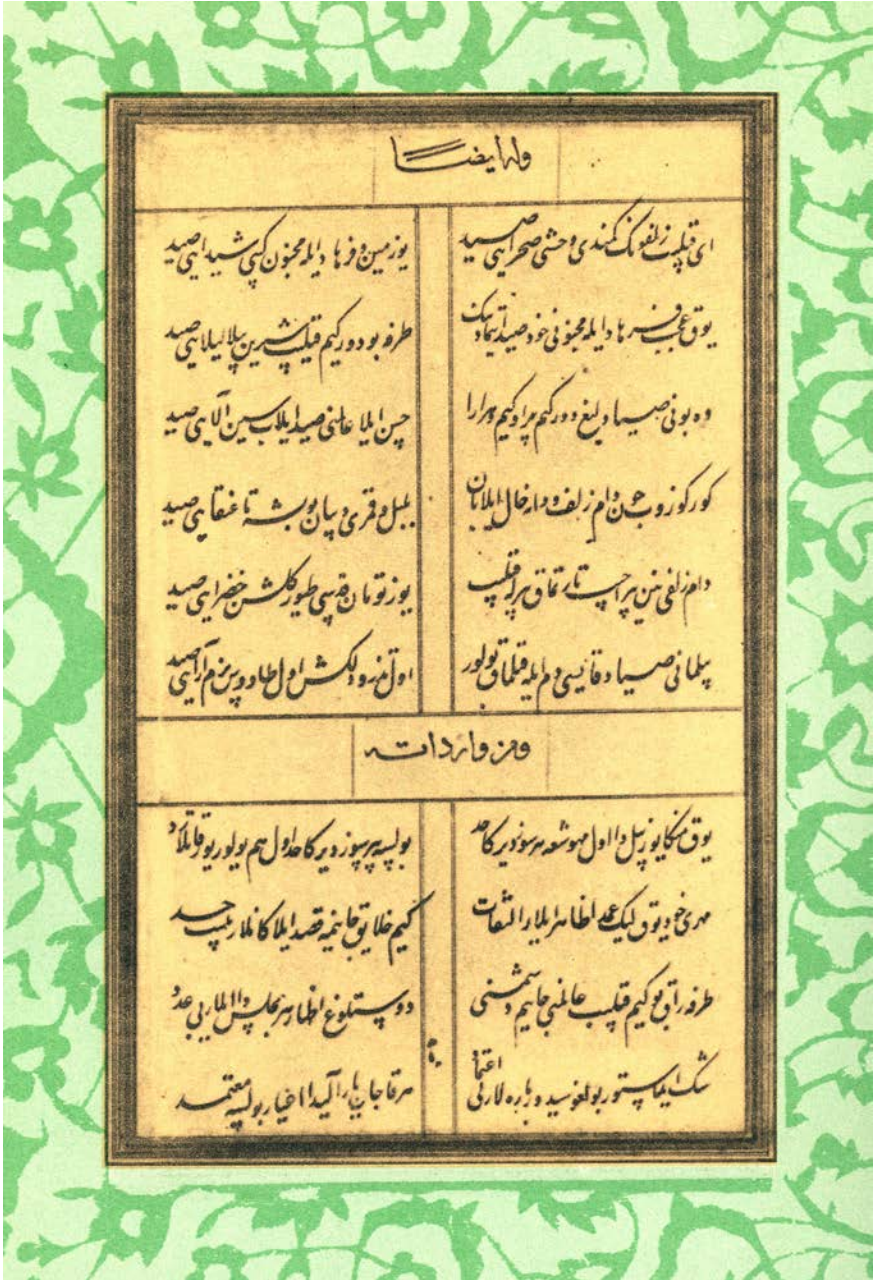 وله ایضا
ای قیلیب زلفونک کمندی وحشی صحرایی صید
یوزمین و فرهاد ایله مجنون کیبی شیدایی صید
یوق عجب فرهاد ایله مجنونی خود صید ایتمادینک
طرفه بو دورکیم قیلیب شیرین بیلا لیلایی صید
وه بونی صیادلیغ دورکیم هرادکیم
حسن ایلا عالمنی صید ایلاب سین آلایی صید
کورکوزوب حسن دام زلف و دانه خال ایلابان
بلبل و قمری دیمان بوبسه تا عنقایی صید
دام زلفی نین بر اچیب تارتماق بیرله قیلیب
یوز تومان قدسی طیور کلشن خضرایی صید
بیلمانی صیاد قایسی دام ایله قیلماق بولور
اول تذرو دلکش اول طاووس بزم آرایی صید
ومن وارداته
یوق منکا یوز ییل دا اول مهوشده هر سوزدیر کا حد
بولسه هر سوزدیرکا حد اول هم بولور یوققا
مهری خود یوق لیک عمدا ظاهر ایلار التفات
کیم خلایق جانیمه قصد ایلاکایلار ییب حسد
طرفه راق بوکیم قیلیب عالمنی جانیم دشمنی
دوستلوغ اظهار هر مجلس دا ایلار بی عدد
شک ایماستور بولغوسید وعده لاری اعتماد
هرقاچان یار آلیدا اغیار بولسه معتمد